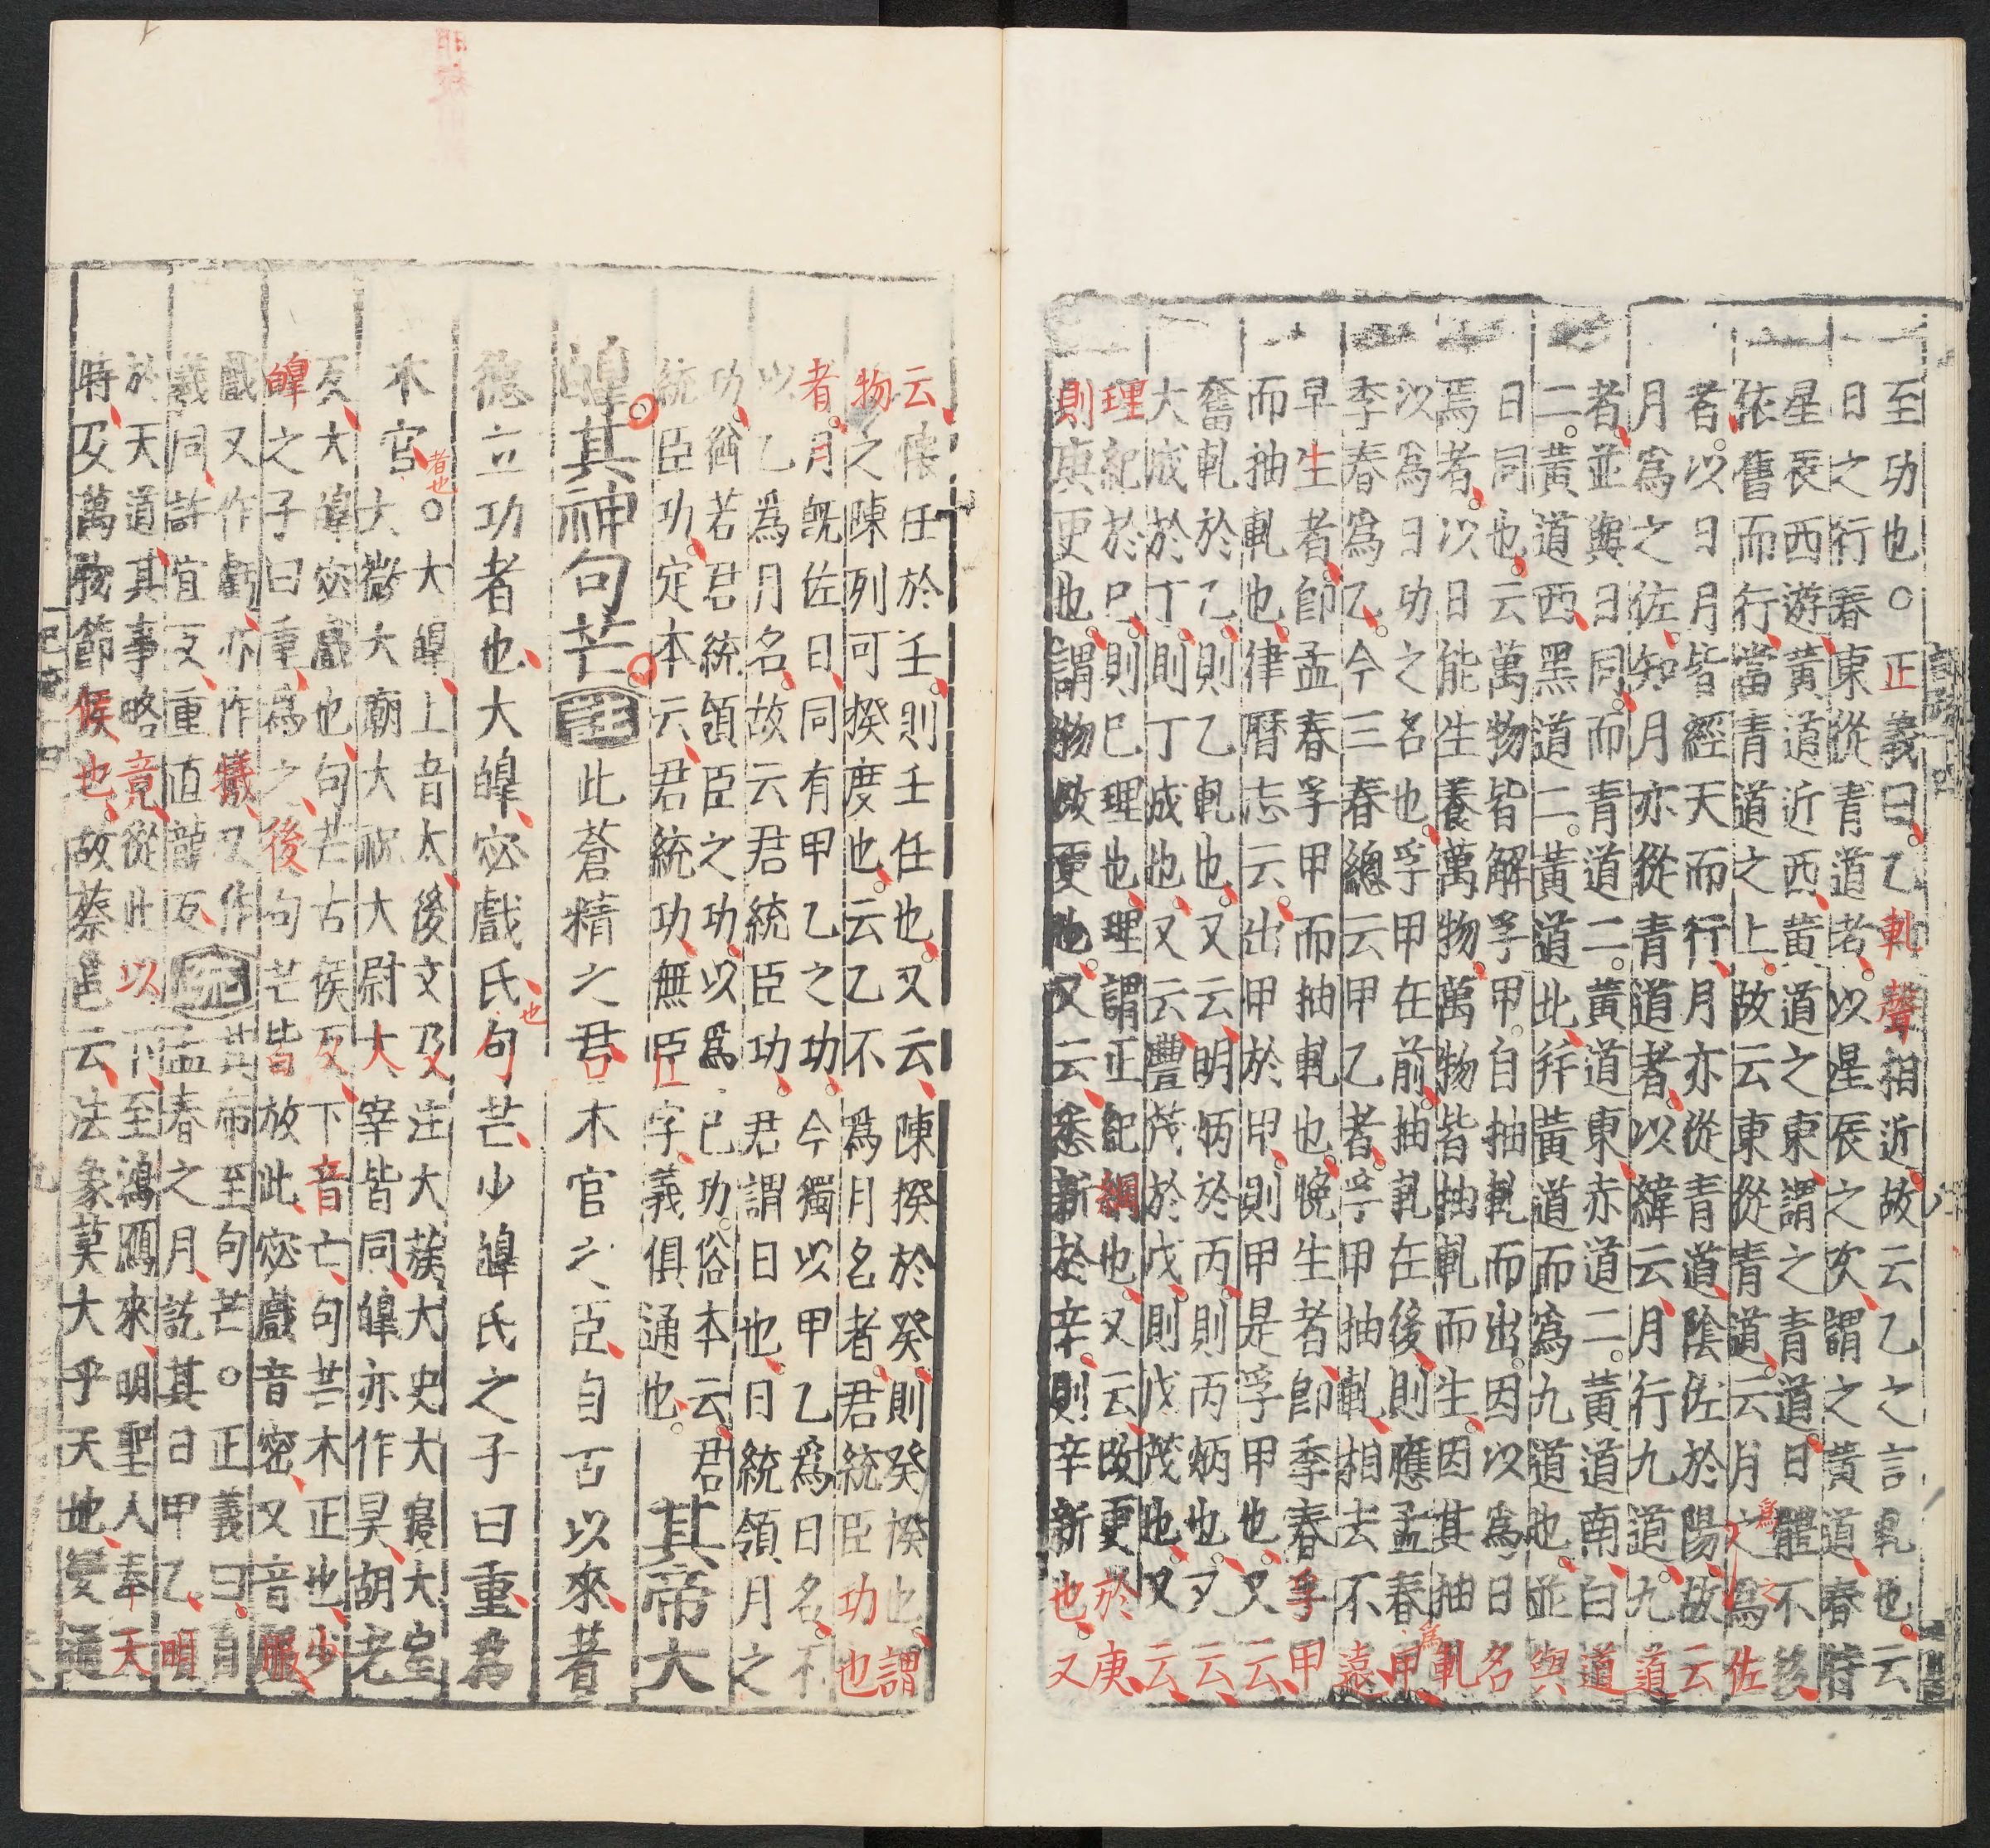 至功也○正義曰乙軋聲相近故云乙之言軋也云
日之行春東從青道者以星辰之次謂之黃道春時
星辰西遊黃道近西黃道之東謂之青道日體不移
依舊而行當青道之上故云東從青道云月之爲佐
者以日月皆經天而行月亦從青道陰佐於陽故云
月爲之佐知月亦從青道者以緯云月行九道九道
者並與日同而青道二黃道東赤道二黃道南白道
二黃道西黑道二黃道北并黃道而爲九道也並與
日同也云萬物皆解孚甲自抽軋而出因以爲日名
焉者以日能生養萬物萬物皆抽軋而生因其抽軋
以爲日功之名也孚甲在前抽軋在後則應孟春爲甲
季春爲乙今三春總云甲乙者孚甲抽軋相去不遠
早生者即孟春孚甲而抽軋也晚生者即季春孚甲
而抽軋也律曆志云出甲於甲則甲是孚甲也又云
奮軋於乙則乙軋也又云明炳於丙則丙炳也又云
大成於丁則丁成也又云豐茂於戊則戊茂也又云
理紀於巳則巳理也理謂正紀綱也又云改更於庚
則庚更也謂物改更也又云悉新於辛則辛新也又
云懷任於壬則壬任也又云陳揆於癸則癸揆也謂
物之陳列可揆度也云乙不爲月名者君統臣功也
者月既佐日同有甲乙之功今獨以甲乙爲日名不
以乙爲月名故云君統臣功君謂日也日統領月之
功猶若君統領臣之功以爲已功俗本云君
統臣功定本云君統功無臣字義俱通也
其帝大
皥其神句芒 注 此蒼精之君木官之臣自古以來著
德立功者也大皥宓戲氏也句芒少皥氏之子曰重爲
木官者也○大皥上音太後文及注大蔟大史大寢大室
大微大廟大祝大尉大宰皆同皥亦作昊胡老
反大皥宓戲也句芒古侯反下音亡句芒木正也少
皥之子曰重爲之後句芒皆放此宓戲音密又音服
戲又作虧亦作犧又作
羲同許宜反重直龍反 疏 其帝至句芒○正義曰自
孟春之月訖其日甲乙明
於天道其事略竟從此以下至鴻鴈來明聖人奉天
時及萬物節候也故蔡邕云法象莫大乎天地變通